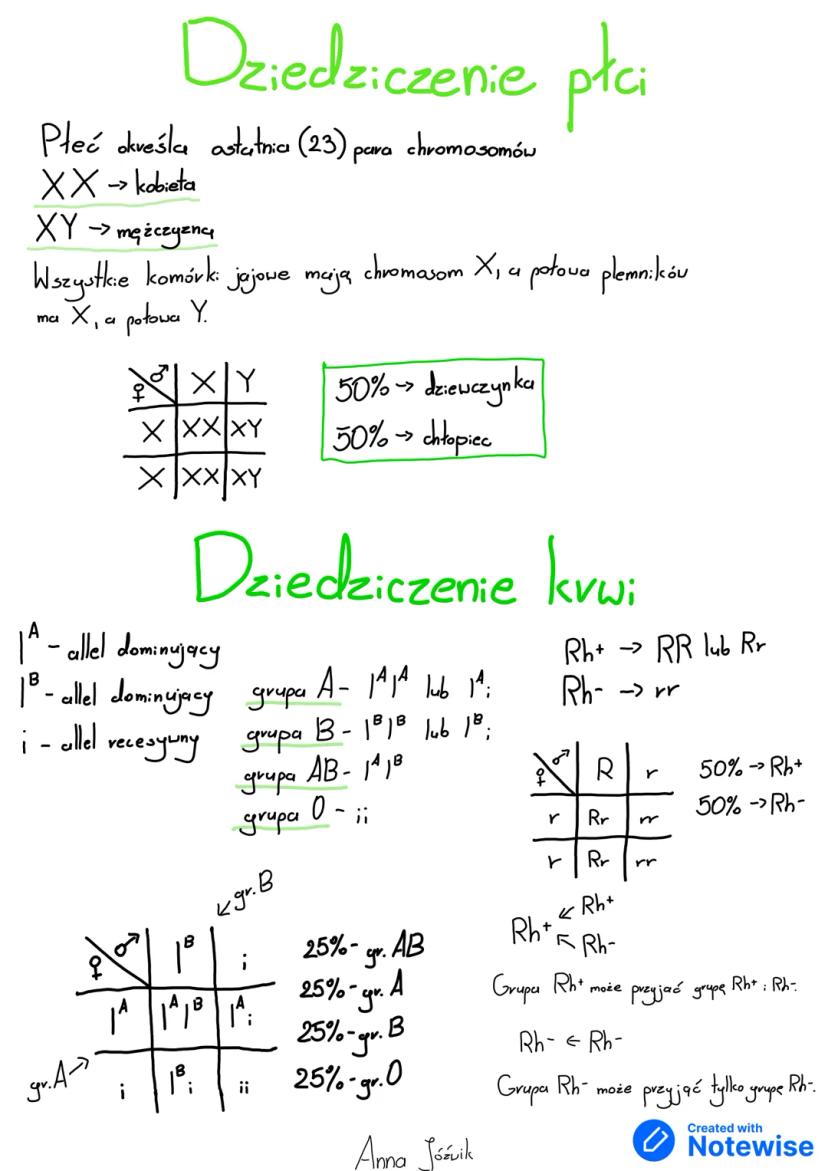 Dziedziczenie płci
Płeć określa ostatnia (23) para chromosomów
XX → kobieta
XY → mężczyzna
Wszystkie komórki jajowe mają chromosom X, a połowa plemników
ma X, a połowa Y.
♀ ♂ X Y
X XX XY
X XX XY
50% → dziewczynka
50% → chłopiec
Dziedziczenie krwi
I^A - allel dominujący
I^B - allel dominujący
i - allel recesywny
grupa A - I^A I^A lub I^A i
grupa B - I^B I^B lub I^B i
grupa AB - I^A I^B
grupa 0 - ii
Rh+ → RR lub Rr
Rh- → rr
♀ ♂ R r
r Rr rr
r Rr rr
50% → Rh+
50% → Rh-
gr. B
♀ ♂ I^B i
I^A I^A I^B I^A i
gr. A i I^B i ii
25% - gr. AB
25% - gr. A
25% - gr. B
25% - gr. 0
Rh+ ← Rh+
← Rh-
Grupa Rh+ może przyjąć grupę Rh+ i Rh-.
Rh- ← Rh-
Grupa Rh- może przyjąć tylko grupę Rh-.
Anna Jóźwik
Created with
Notewise